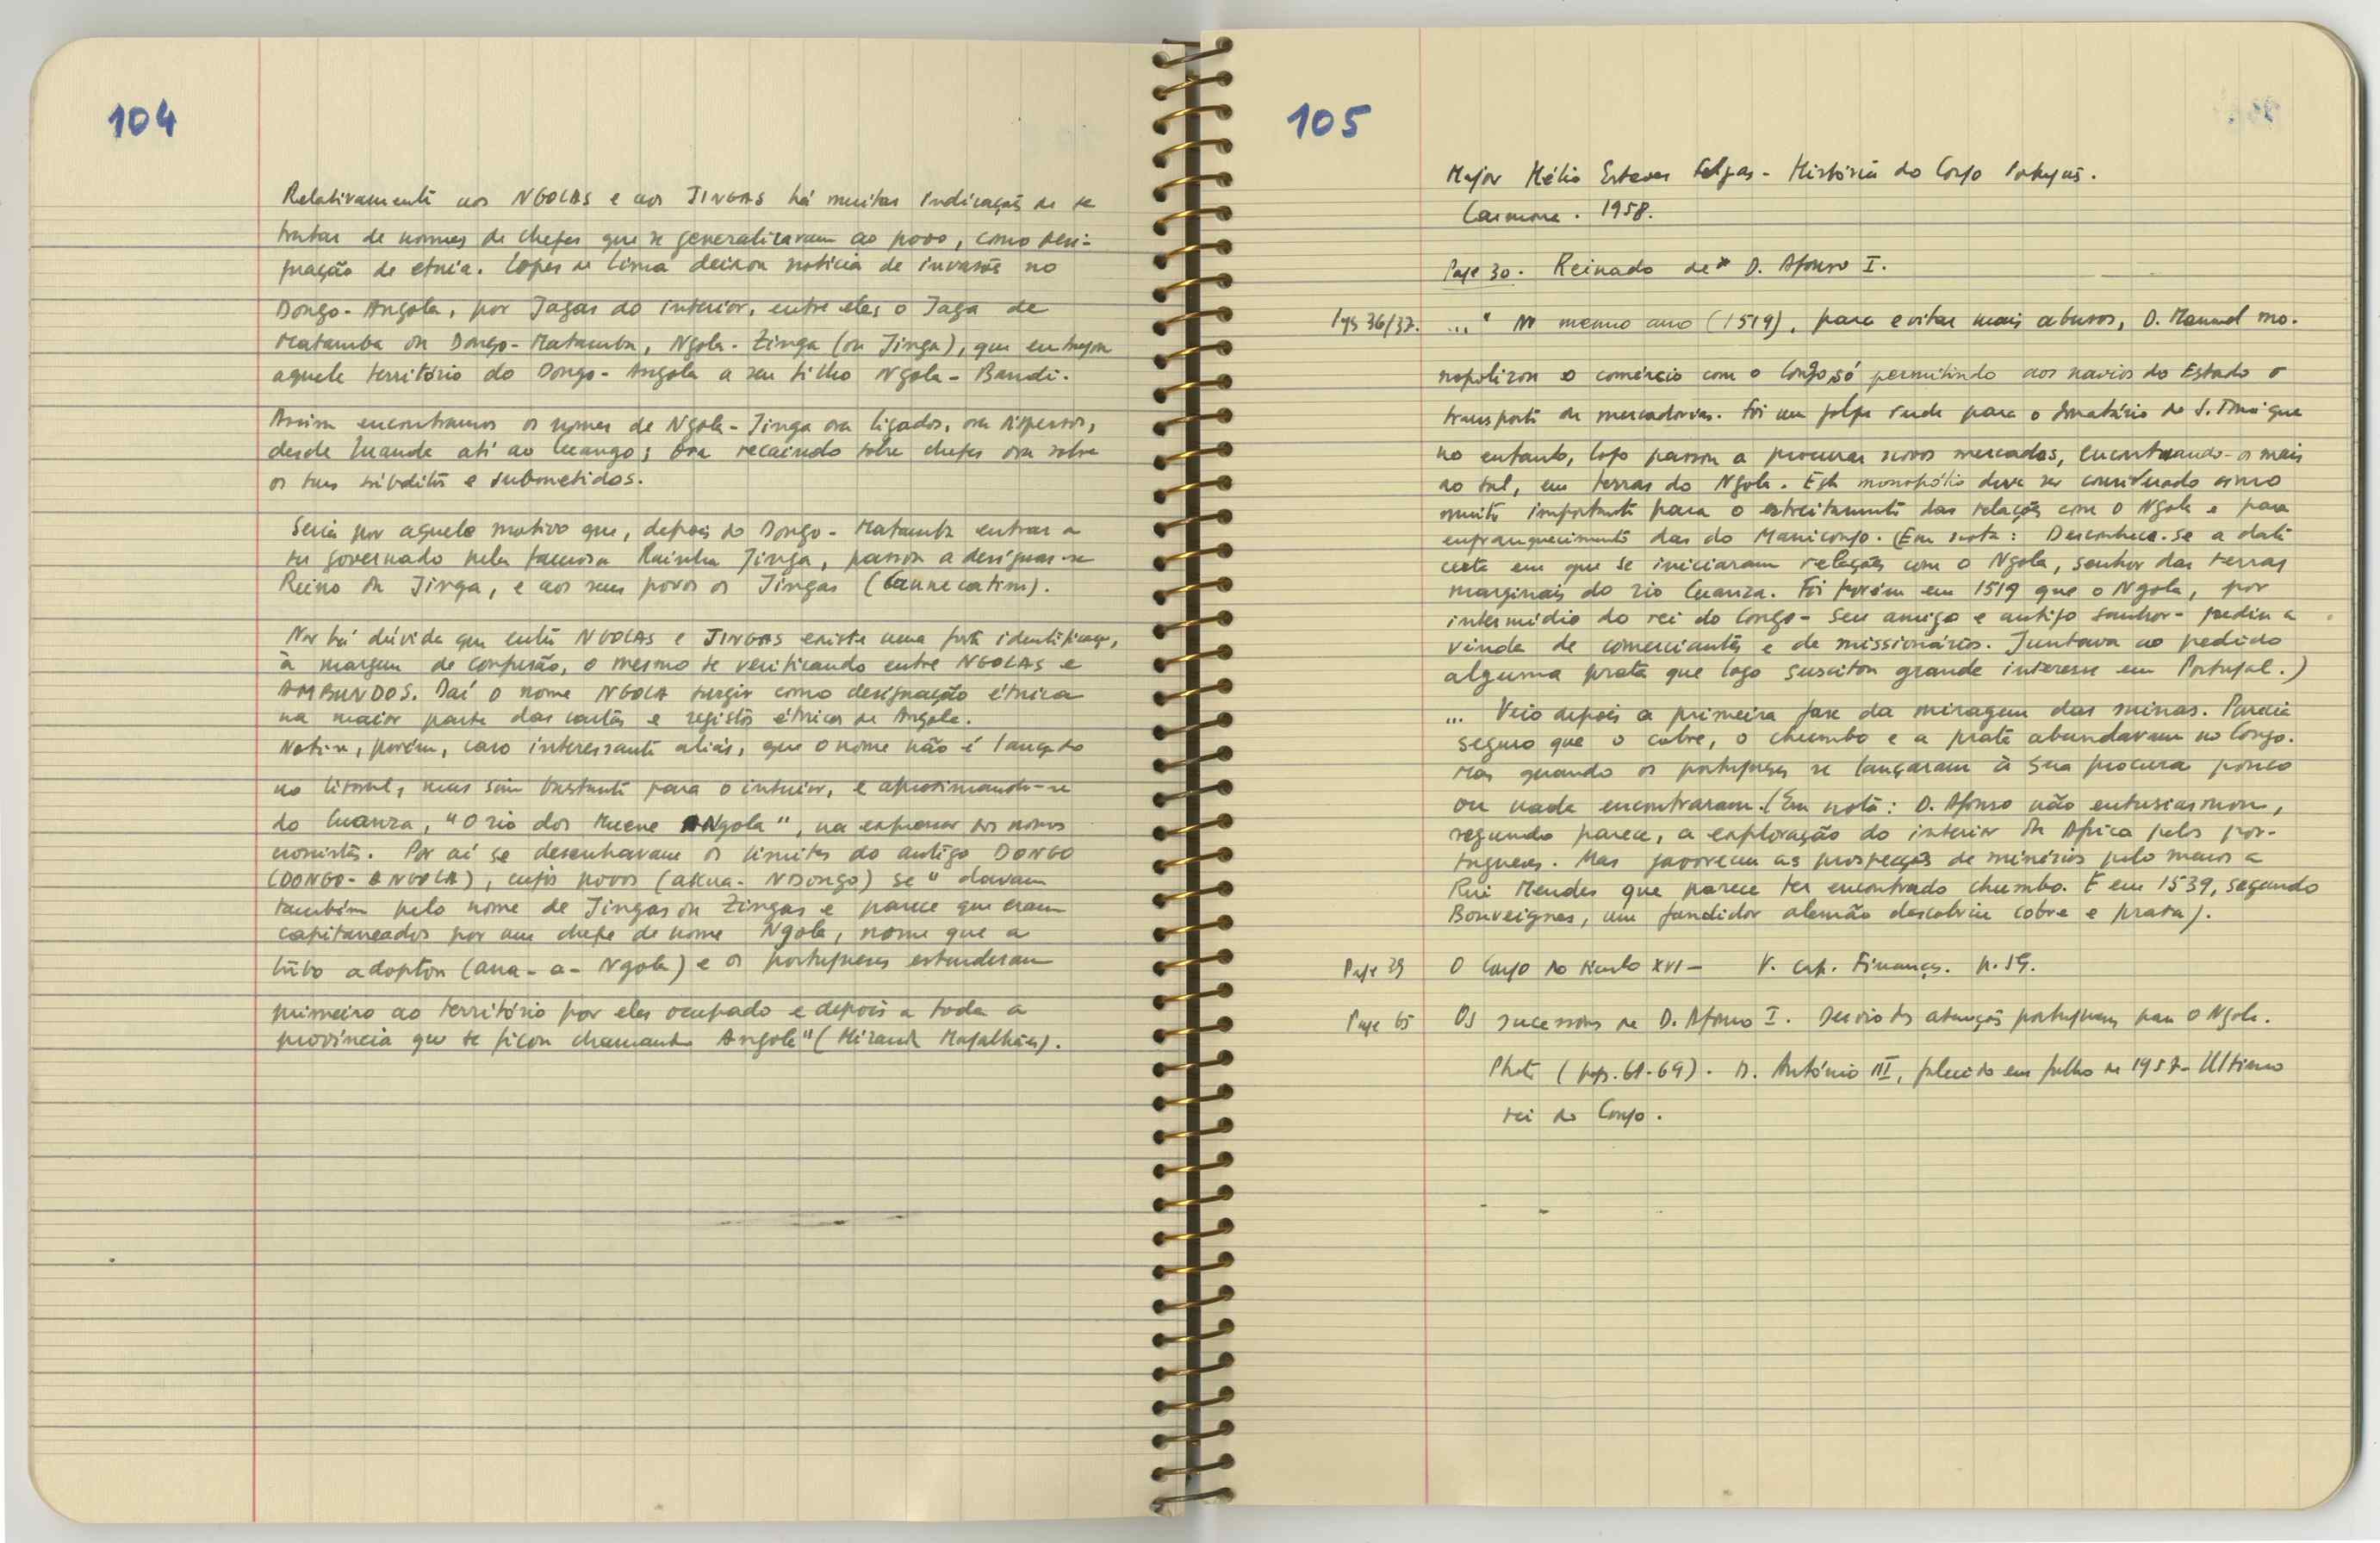 104
Relativamente aos NGOLAS e aos JINGAS há muitas indicações de se
tratar de nomes de chefes que se generalizaram ao povo, como desi-
gnação de etnia. Lopes de Lima deixou notícia de invasões no
Dongo-Angola, por Jagas do interior, entre eles o Jaga de
Matamba ou Dongo-Matamba, Ngola-Zinga (ou Jinga), que entregou
aquele território do Dongo-Angola a seu filho Ngola-Bandi.
Assim encontramos os nomes de Ngola-Jinga ora ligados, ora dispersos,
desde Luanda até ao Cuango; ora recaindo sobre chefes ora sobre
os seus súbditos e submetidos.
Seria por aquele motivo que, depois do Dongo-Matamba entrar a
ser governado pela famosa Rainha Jinga, passou a designar-se
Reino da Jinga, e aos seus povos os Jingas (Cannecatim).
Não há dúvida que entre NGOLAS e JINGAS existe uma forte identificação,
à margem de confusão, o mesmo se verificando entre NGOLAS e
AMBUNDOS. Daí o nome NGOLA surgir como designação étnica
na maior parte das cartas e registos étnicos de Angola.
Note-se, porém, caso interessante aliás, que o nome não é lançado
no litoral, mas sim bastante para o interior, e aproximando-se
do Cuanza, "O rio dos Muene Ngola", na expressão dos nossos
cronistas. Por aí se desenhavam os limites do antigo DONGO
(DONGO-ANGOLA), cujos povos (akua-NDongo) se "davam
também pelo nome de Jingas ou Zingas e parece que eram
capitaneados por um chefe de nome Ngola, nome que a
tribo adoptou (ana-a-Ngola) e os portugueses estenderam
primeiro ao território por eles ocupado e depois a toda a
província que se ficou chamando Angola" (Miranda Magalhães).
105
Major Hélio Esteves Felgas - História do Congo Português.
Carmona. 1958.
Page 30. Reinado de D. Afonso I.
Pgs 36/37. ..." No mesmo ano (1519), para evitar mais abusos, D. Manuel mo-
nopolizou o comércio com o Congo, só permitindo aos navios do Estado o
transporte de mercadorias. Foi um golpe rude para o donatário de S. Tomé que
no entanto, logo passou a procurar novos mercados, encontrando-os mais
ao sul, em terras do Ngola. Este monopólio deve ser considerado como
muito importante para o estreitamento das relações com o Ngola e para
enfraquecimento das do Manicongo. (Em nota: Desconhece-se a data
certa em que se iniciaram relações com o Ngola, senhor das terras
marginais do rio Cuanza. Foi porém em 1519 que o Ngola, por
intermédio do rei do Congo - seu amigo e antigo senhor - pediu a
vinda de comerciantes e de missionários. Juntava ao pedido
alguma prata que logo suscitou grande interesse em Portugal.)
... Veio depois a primeira fase da miragem das minas. Parecia
seguro que o cobre, o chumbo e a prata abundavam no Congo.
Mas quando os portugueses se lançaram à sua procura pouco
ou nada encontraram. (Em nota: D. Afonso não entusiasmou,
segundo parece, a exploração do interior da Africa pelos por-
tugueses. Mas favoreceu as prospecções de minérios pelo menos a
Rui Mendes que parece ter encontrado chumbo. E em 1539, segundo
Bouveignes, um fundidor alemão descobriu cobre e prata).
Page 39 O Congo no século XVI - V. cap. Finanças. p. 59.
Page 65 Os sucessores de D. Afonso I. Desvio das atenções portuguesas para o Ngola.
Photo (pgs. 68-69). D. António III, falecido em Julho de 1957 - Ultimo
rei do Congo.